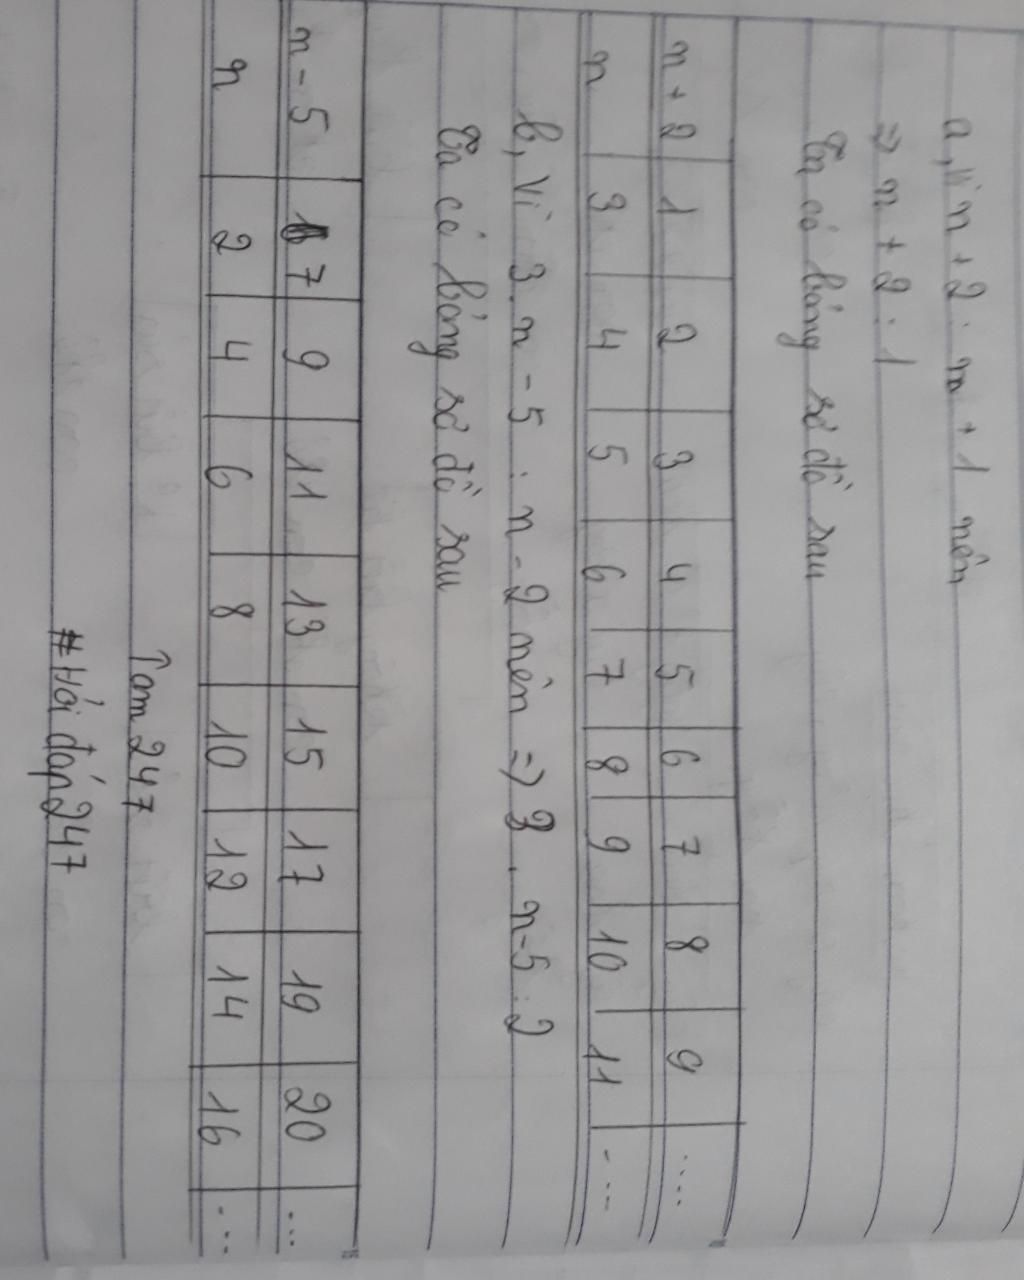 a, vì n + 2 : n + 1 nên
=> n + 2 : 1
Ta có bảng sơ đồ sau
n + 2 1 2 3 4 5 6 7 8 9 ....
n 3 4 5 6 7 8 9 10 11 ...
b, Vì 3. n - 5 : n - 2 nên => 3 . n - 5 : 2
Ta có bảng sơ đồ sau
n - 5 7 9 11 13 15 17 19 20 ...
n 2 4 6 8 10 12 14 16 ...
Tam 247
#Hỏi đáp 247